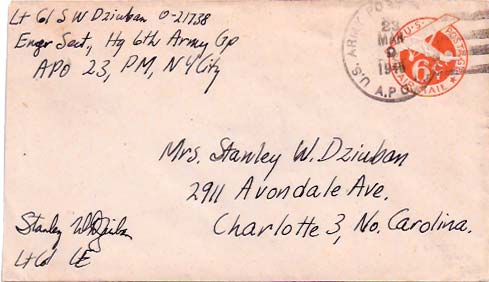 Lt Col S W Dziuban O-21738
Engr Sect, Hq 6th Army Gp
APO 23, PM, N Y City
U.S. ARMY POS
23
MAR
9
A.P.O.
U.S. POSTAGE
6¢
AIR MAIL
Mrs. Stanley W. Dziuban
2911 Avondale Ave.
Charlotte 3, No. Carolina.
Stanley W Dziuban
Lt Col CE